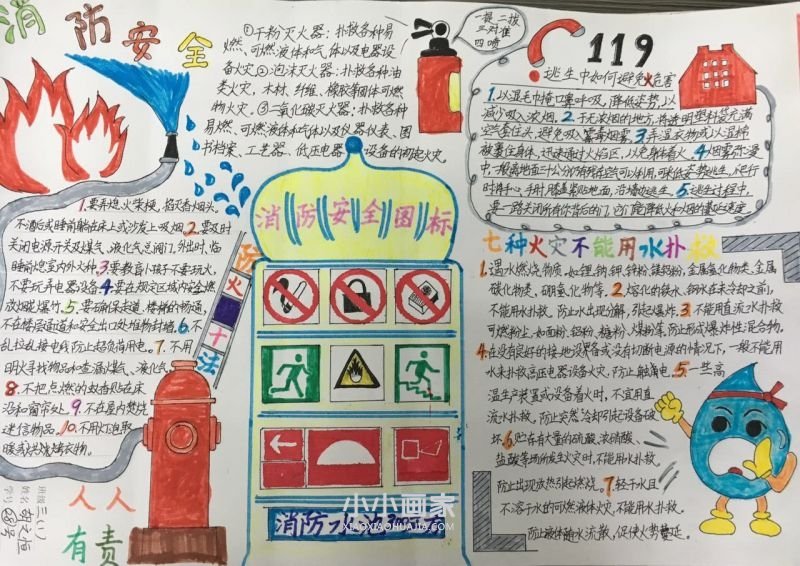 消防安全
①干粉灭火器：扑救各种易
燃、可燃液体和气体以及电器设
备火灾②泡沫灭火器：扑救各种油
类火灾，木材、纤维、橡胶等固体可燃
物火灾。③二氧化碳灭火器：扑救各种
易燃、可燃液体和气体以及仪器仪表、图
书档案、工艺器、低压电器设备的初起火灾。
一提二拔
三对准
四喷
119
逃生中如何避免火危害
1.以湿毛巾掩口鼻呼吸，降低姿势，以
减少吸入浓烟。2.于无浓烟的地方，将透明塑料袋充满
空气套住头，避免吸入
3.弄湿衣物或以湿棉
被裹住身体，迅速通过火焰区，以免身体着火。4.烟雾弥漫
中，一般离地面三十公分仍有残存空气可以利用，可采低姿势逃生，爬行
时将手心、手肘、膝盖紧贴地面，沿墙边逃生。5.逃生过程中，
要一路关闭所有你背后的门，它能降低火和烟的蔓延速度。
1.要弄熄火柴梗，掐灭香烟头，
不酒后或睡前躺在床上或沙发上吸烟。2.要及时
关闭电源开关及煤气、液化气总阀门，外出时、临
睡前熄室内外火种。3.要教育小孩子不要玩火，
不要玩弄电器设备。4.要在规定区域内安全燃
放烟花爆竹。5.要确保走道、楼梯的畅通，
不在楼层通道和安全出口处堆物封墙。6.不
乱拉乱接电线，防止超负荷用电。7.不用
明火寻找物品和查漏煤气、液化气
8.不把点燃的蚊香贴在床
沿和窗帘处。9.不在屋内焚烧
迷信物品。10.不用灯泡取
暖或烘烧烤衣物。
防火十法
消防安全图标
七种火灾不能用水扑救
1.遇水燃烧物质，如锂、钠、钾、锌粉、镁铝粉，金属氢化物类、金属
碳化物类、硼氢化物等。2.熔化的铁水、钢水在未冷却之前，
不能用水扑救，防止水出现分解，引起爆炸。3.不能用直流水扑救
可燃粉尘，如面粉、铝粉、糖粉、煤粉等，防止形成爆炸性混合物。
4.在没有良好的接地设备或没有切断电源的情况下，一般不能用
水来扑救高压电器设备火灾，防止触漏电。5.一些高
温生产装置或设备着火时，不宜用直
流水扑救，防止突然冷却引起设备破
坏。6.贮存有大量的硫酸、浓硝酸、
盐酸等场所发生火灾时，不能用水扑救，
防止出现放热引起燃烧。7.轻于水且
不溶于水的可燃液体火灾，不能用水扑救，
防止液体随水流散，促使火势蔓延。
人人
有责
班级 三(1)
姓名
学号
小小画家
XIAOXIAOHUAJIA.COM